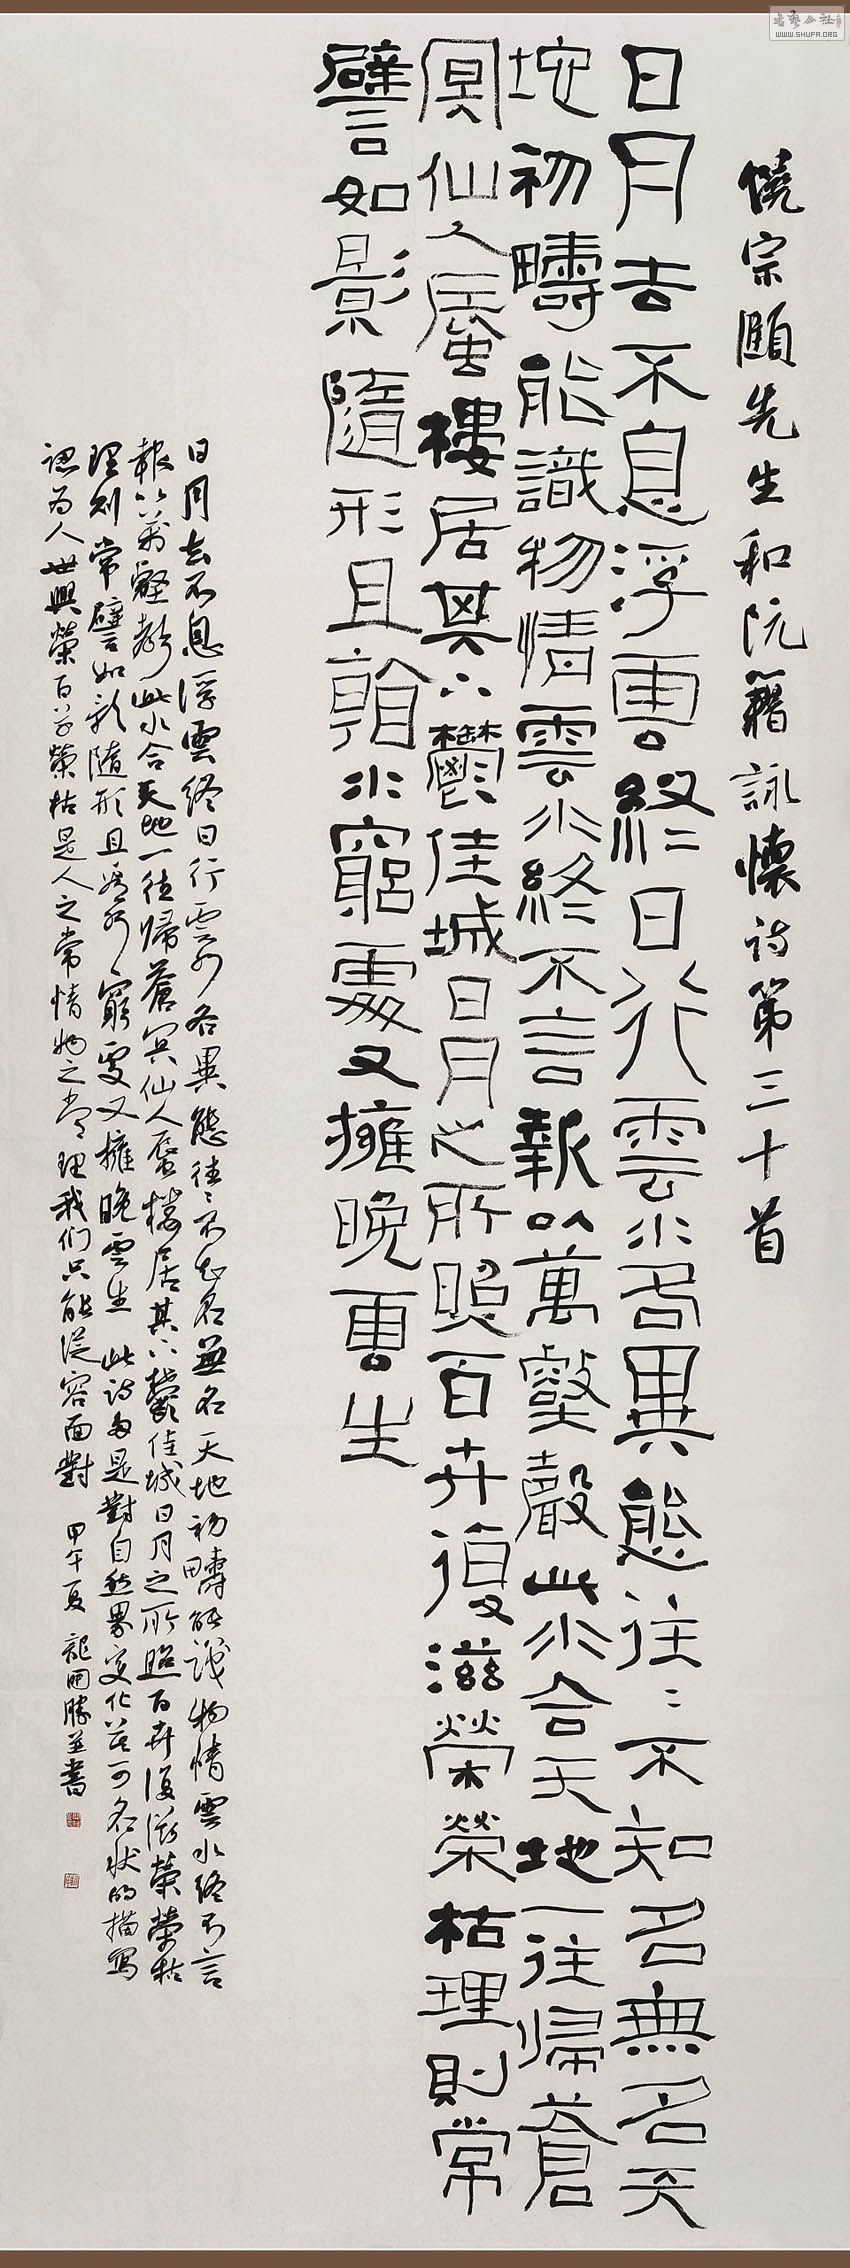 饒宗頤先生和阮籍詠懷诗第三十首
日月去不息浮雲終日行雲水各異態往往不知名無名天
地初疇能識物情雲水終不言報以萬壑聲此水合天地一往歸蒼
冥仙人蜃樓居其下鬱佳城日月之所照百卉復滋榮榮枯理則常
譬如影隨形且窮水窮處又擁晚雲生
日月去不息浮雲終日行雲水各異態往往不知名無名天地初疇能識物情雲水終不言
報以萬壑聲此水合天地一往歸蒼冥仙人蜃樓居其下鬱佳城日月之所照百卉復滋榮榮枯
理則常譬如影隨形且窮處又擁晚雲生 此诗多是對自然界变化莫可名状的描寫
認为人世興榮百草榮枯是人之常情物之常理我们只能從容面對 甲午夏 龍國勝並書
書藝公社
WWW.SHUFA.ORG